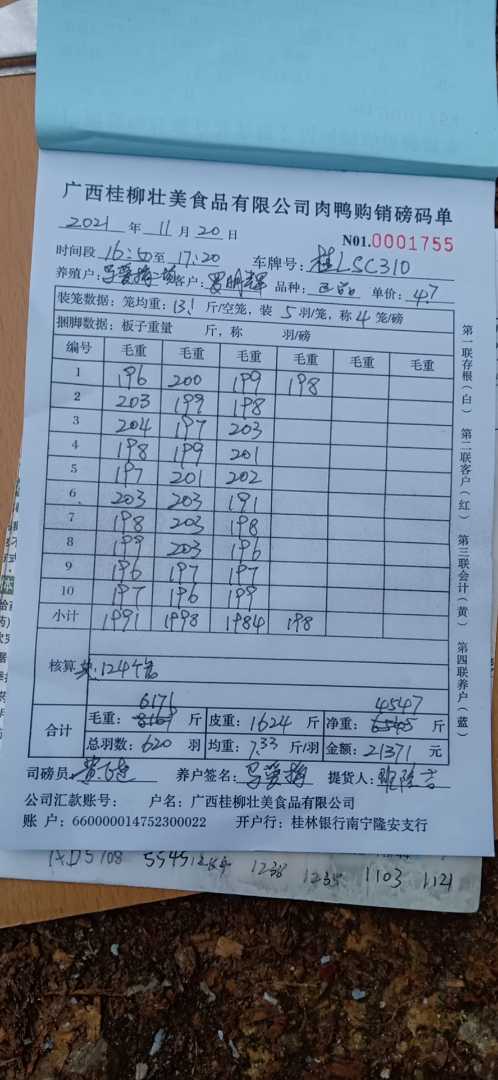 广西桂柳壮美食品有限公司肉鸭购销磅码单
2021 年 11 月 20 日
N01.0001755
时间段 16:50 至 17:20 车牌号: 桂LSC310
养殖户: 客户: 罗明辉 品种: 正品 单价: 4.7
装笼数据: 笼均重: 13.1 斤/空笼, 装 5 羽/笼, 称 4 笼/磅
捆脚数据: 板子重量 斤, 称 羽/磅
编号 毛重 毛重 毛重 毛重 毛重 毛重
1 196 200 199 198
2 203 199 198
3 204 197 203
4 198 199 201
5 197 201 202
6 203 203 191
7 198 203 198
8 199 203 196
9 196 197 197
10 197 196 199
小计 1991 1998 1984 198
核算 共: 124个笼
6171 4547
合计 毛重: 斤 皮重: 1624 斤 净重: 斤
总羽数: 620 羽 均重: 7.33 斤/羽 金额: 21371 元
司磅员: 养户签名: 马爱梅 提货人:
公司汇款账号: 户名: 广西桂柳壮美食品有限公司
账 户: 660000014752300022 开户行: 桂林银行南宁隆安支行
第一联存根(白) 第二联客户(红) 第三联会计(黄) 第四联养户(蓝)
1238 1235 1103 1121